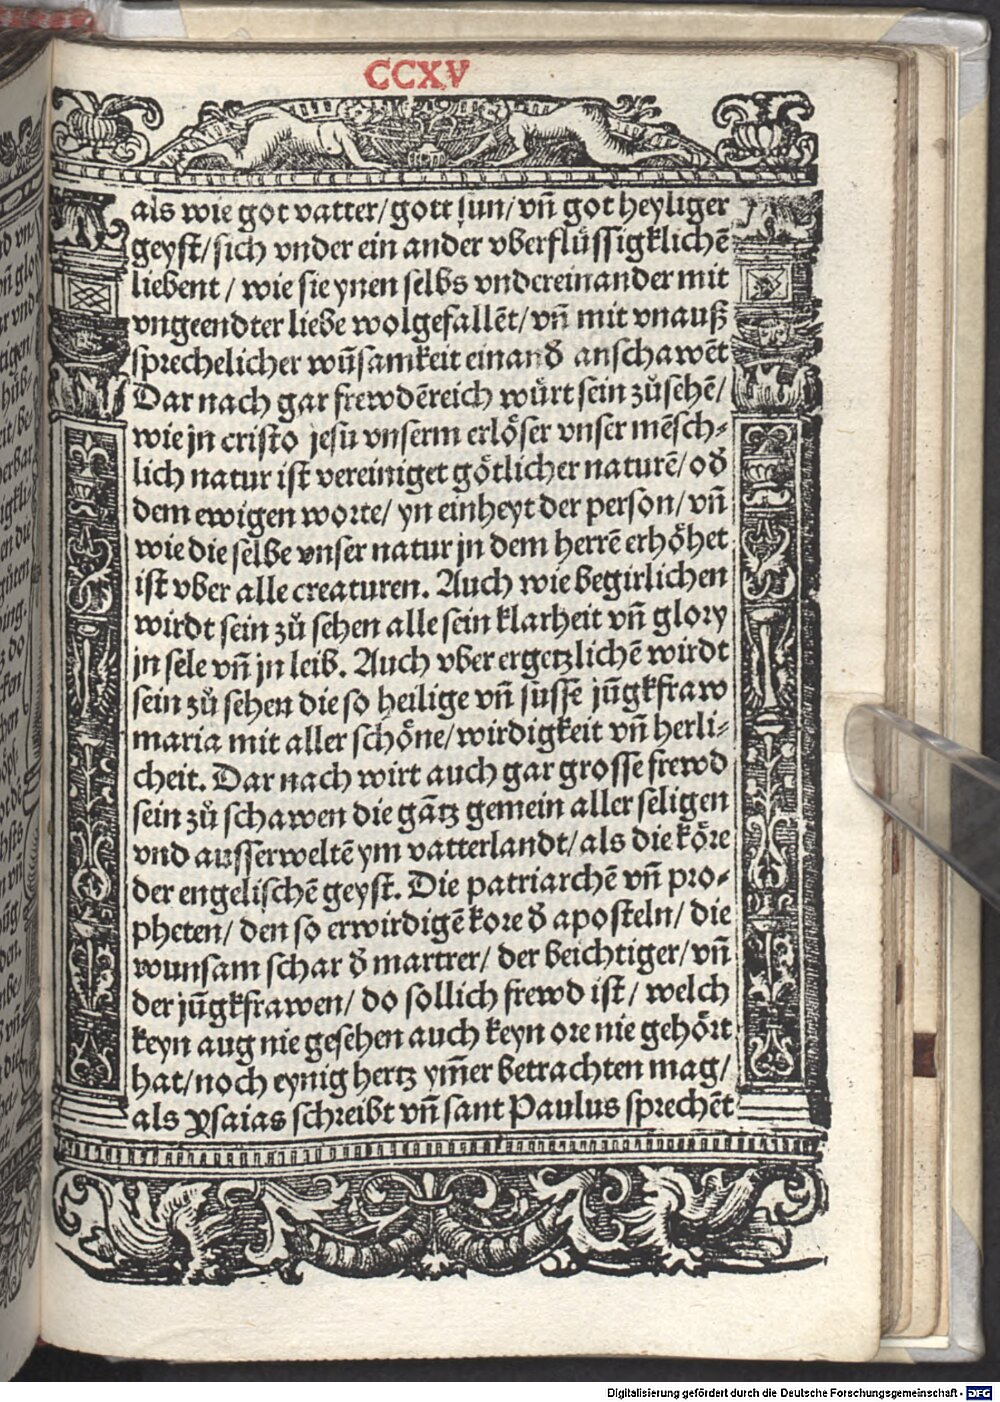 CCXV
als wie got vatter/ gott sun/ vñ got heyliger
geyst/ sich vnder ein ander vberflüssigklichē
liebent / wie sie ynen selbs vndereinander mit
vngeendter liebe wolgefallēt/ vñ mit vnauß
sprechelicher wūsamkeit einand᷑ anschawēt
Dar nach gar frewdēreich wu̇rt sein zůsehē/
wie jn cristo jesu vnserm erlöser vnser mēsch⸗
lich natur ist vereiniget götlicher naturē/ od᷑
dem ewigen worte/ yn einheyt der person/ vñ
wie die selbe vnser natur jn dem herrē erhöhet
ist vber alle creaturen. Auch wie begirlichen
wirdt sein zů sehen alle sein klarheit vñ glory
jn sele vñ jn leib. Auch vber ergetzlichē wirdt
sein zů sehen die so heilige vñ süsse jūgkfraw
maria mit aller schöne/ wirdigkeit vñ herli⸗
cheit. Dar nach wirt auch gar grosse frewd
sein zů schawen die gātz gemein aller seligen
vnd ausserweltē ym vatterlandt/ als die köre
der engelischē geyst. Die patriarchē vñ pro⸗
pheten/ den so erwirdigē kore d᷑ aposteln/ die
wunsam schar d᷑ martrer/ der beichtiger/ vñ
der jūgkfrawen/ do sollich frewd ist/ welch
keyn aug nie gesehen auch keyn ore nie gehört
hat/ noch eynig hertz ym̄er betrachten mag/
als Ysaias schreibt vñ sant Paulus sprechēt
Digitalisierung gefördert durch die Deutsche Forschungsgemeinschaft - DFG